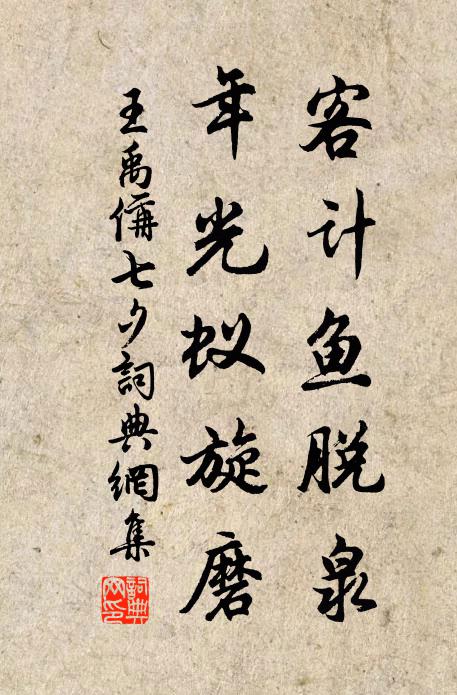 客计鱼脱泉
年光蚁旋磨
王禹偁七夕詞典網集
詞典網印